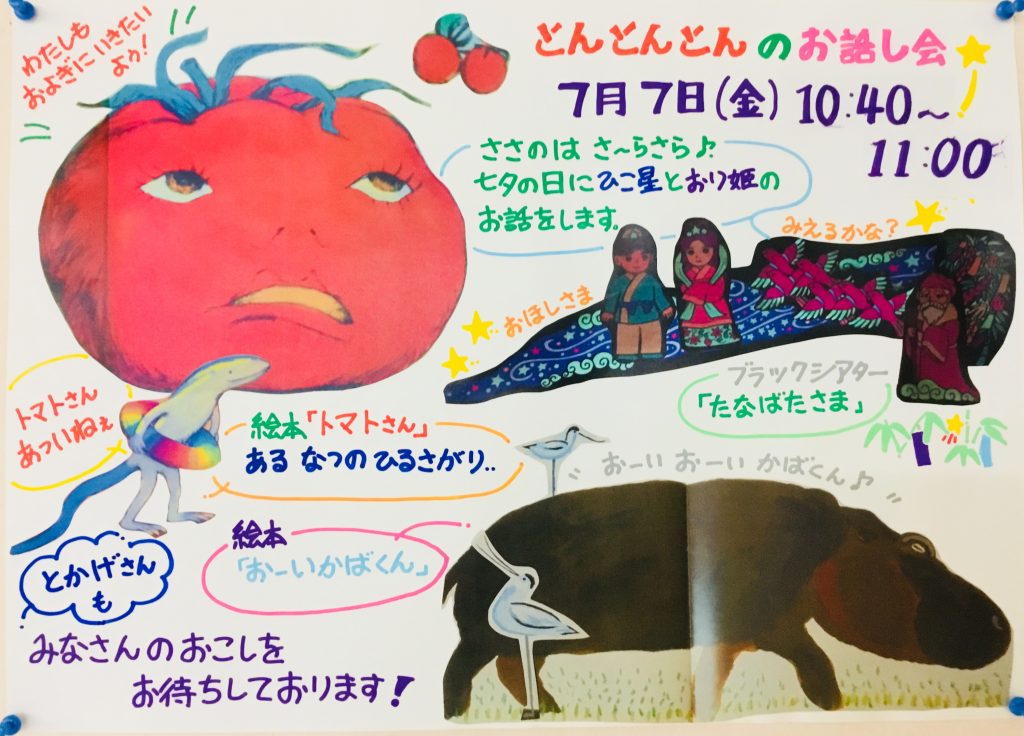 わたしも
およぎにいきたい
よう！
とんとんとんのお話し会
7月7日(金) 10:40～
11:00
ささのは さ～らさら♪
七夕の日にひこ星とおり姫の
お話をします。
みえるかな?
おほしさま
ブラックシアター
「たなばたさま」
トマトさん
あっいねぇ
絵本「トマトさん」
ある なつの ひるさがり..
おーい おーい かばくん♪
絵本
「おーいかばくん」
とかげさん
も
みなさんのおこしを
お待ちしております！